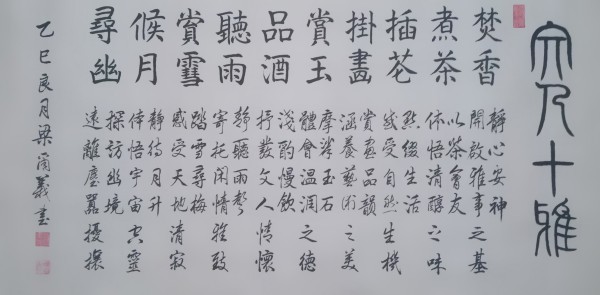 宋人十雅
焚香
煮茶
插花
掛畫
賞玉
品酒
聽雨
賞雪
候月
尋幽
靜心安神
開啟雅事之基
以茶會友
体悟清醇之味
點缀生活
感受自然生機
賞畫品韻
涵養藝術之美
摩挲玉石
體會温润之德
淺酌慢飲
抒發文人情懷
靜聽雨聲
寄托闲情雅致
踏雪尋梅
感受天地清寂
靜待月升
体悟宇宙空靈
探訪幽境
遠離塵囂擾攘
乙巳良月梁義書